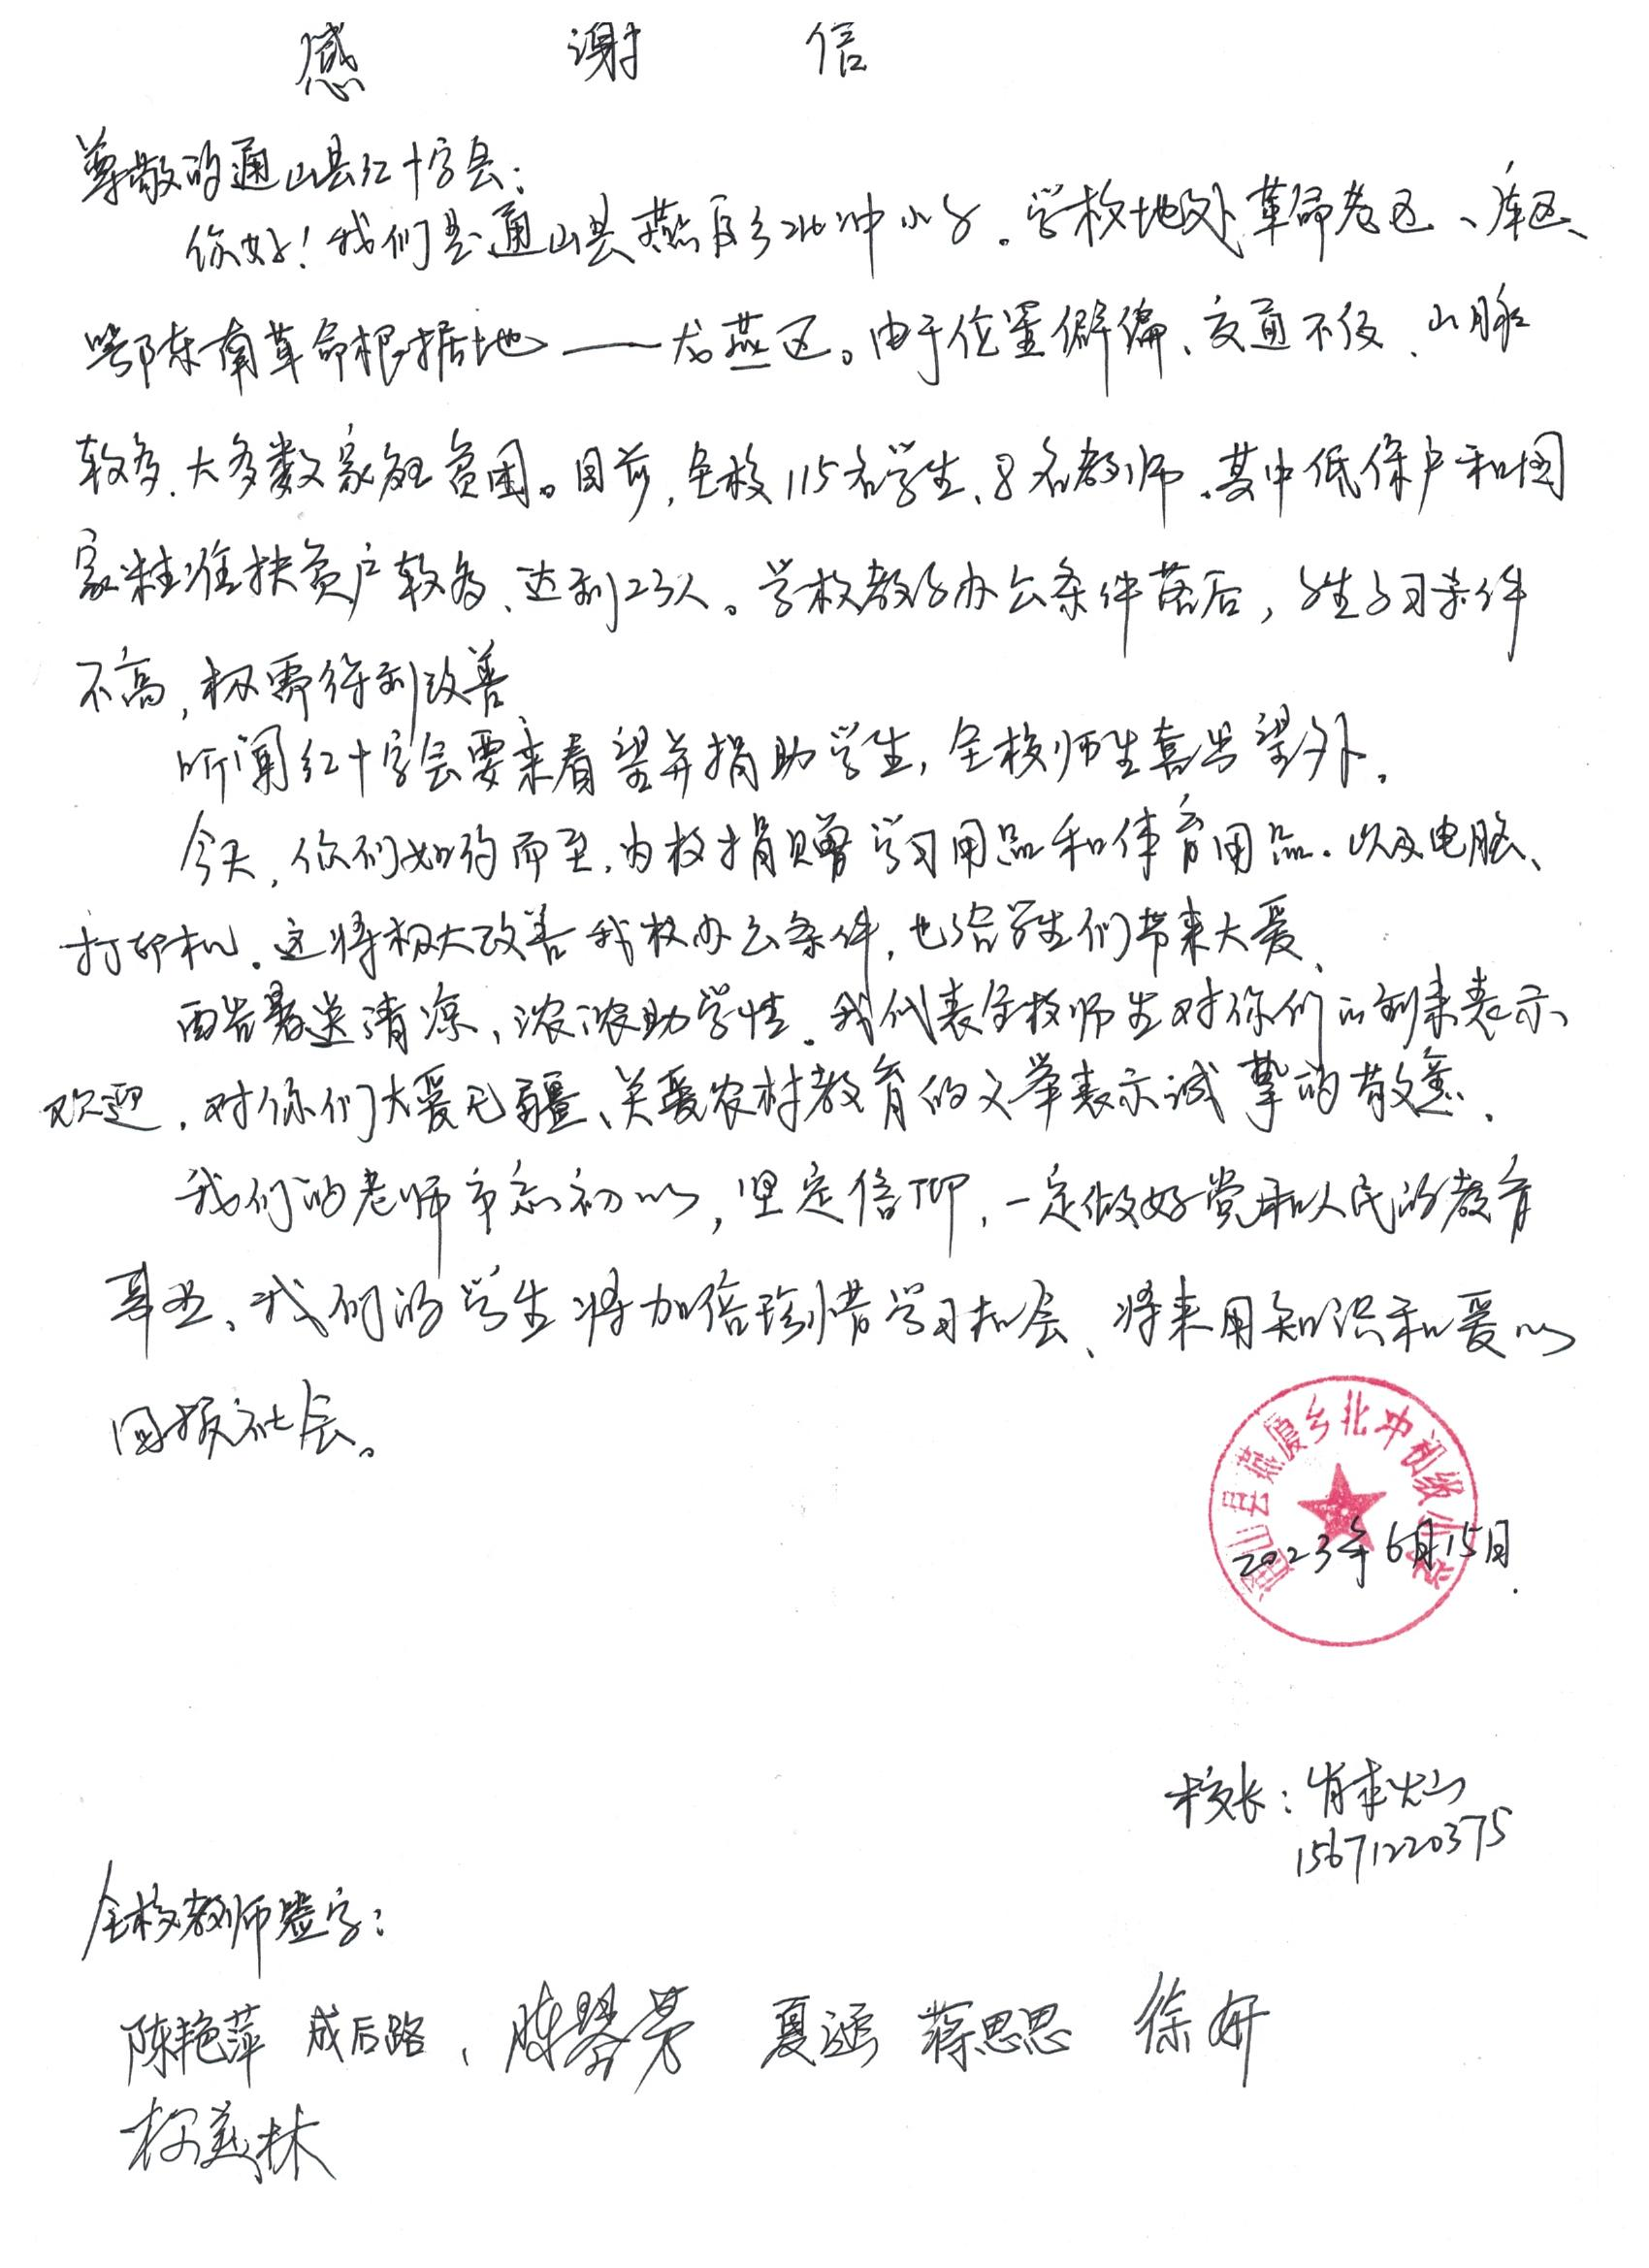 感谢信
尊敬的通山县红十字会：
你好！我们是通山县燕厦乡北冲小学。学校地处革命老区、库区、
鄂东南革命根据地——龙燕区。由于位置僻偏、交通不便、山脉
较多、大多数家庭贫困。目前，全校115名学生、8名教师、其中低保户和国
家精准扶贫户较多、达到23人。学校教学办公条件落后，学生学习条件
不高，极需得到改善
听闻红十字会要来看望并捐助学生，全校师生喜出望外。
今天，你们如约而至，为校捐赠学习用品和体育用品。以及电脑、
打印机。这将极大改善我校办公条件，也给学生们带来大爱、
酷暑送清凉、浓浓助学情。我代表全校师生对你们的到来表示
欢迎，对你们大爱无疆、关爱农村教育的义举表示诚挚的敬意。
我们的老师市忘初心，坚定信仰，一定做好党和人民的教育
事业、我们的学生将加倍珍惜学习机会、将来用知识和爱心
回报社会。
通山县燕厦乡北冲初级小学
2023年6月15日
校长：肖本灿
15671220375
全校教师签字：
陈艳萍 成后路、陈琴芳 夏涵 蒋思思 徐妍
柳美林